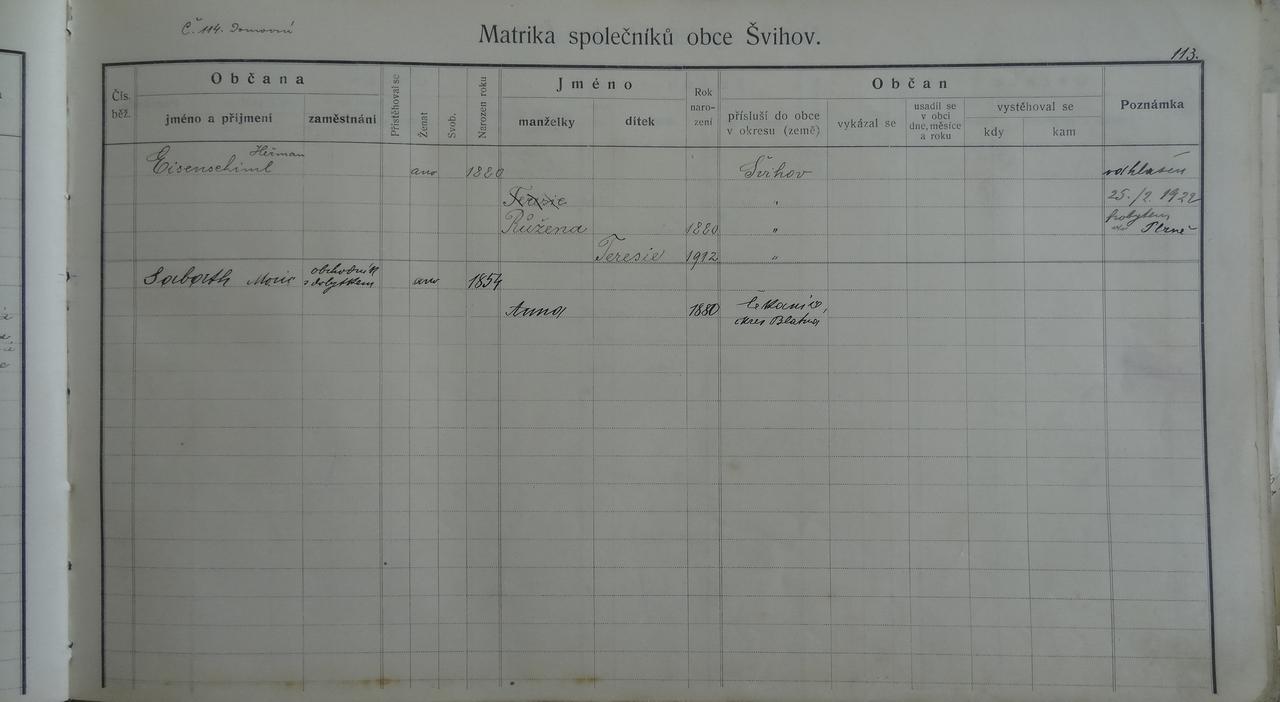 Č. 114. Domovní
Matrika společníků obce Švihov.
113.
Čís. běž.
Občana
jméno a příjmení
zaměstnání
Přistěhoval se
Ženat
Svob.
Narozen roku
Jméno
manželky
dítek
Rok naro- zení
Občan
přísluší do obce v okresu (země)
vykázal se
usadil se v obci dne, měsíce a roku
vystěhoval se
kdy
kam
Poznámka
Heřman
Eisenschiml ano 1880 Švihov odhlášen
Teresie " 25./2. 1922
Růžena 1880 " pobytem do Plzně
Teresie 1912 "
Sabath Moric obchodník s dobytkem ano 1854
Anna 1880
okres Blatná